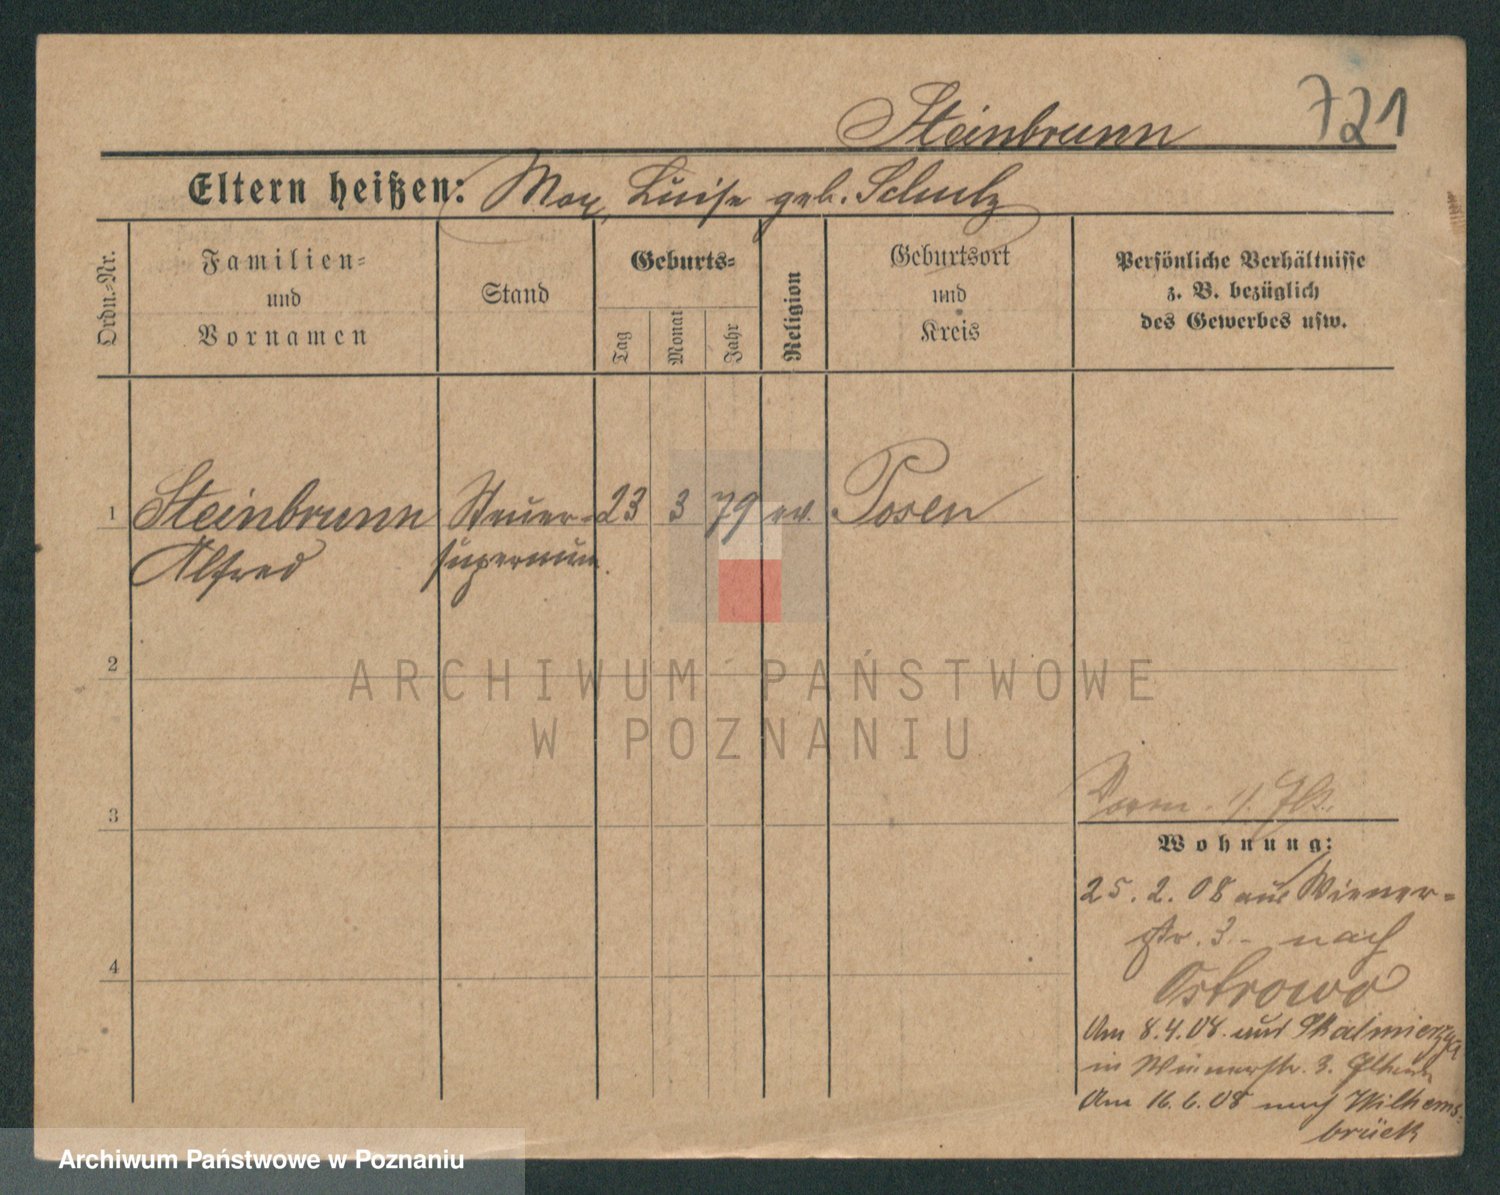 Steinbrunn 721
Eltern heißen: Max, Luise geb. Schulz
Ordn.-Nr.
Familien-
und
Vornamen
Stand
Geburts-
Tag
Monat
Jahr
Religion
Geburtsort
und
Kreis
Persönliche Verhältnisse
z. B. bezüglich
des Gewerbes usw.
1 Steinbrunn Steuer- 23 3 79 ev. Posen
Alfred supernum.
2
ARCHIWUM PAŃSTWOWE
W POZNANIU
3
Wohnung:
25. 2. 08 aus Wiener-
str. 3 - nach
Ostrowo
4
Am 8.4.08. aus Skalmierzyce
in Wienerstr. 3. Eltern
Am 16.6.08 nach Wilhelms-
brück
Archiwum Państwowe w Poznaniu